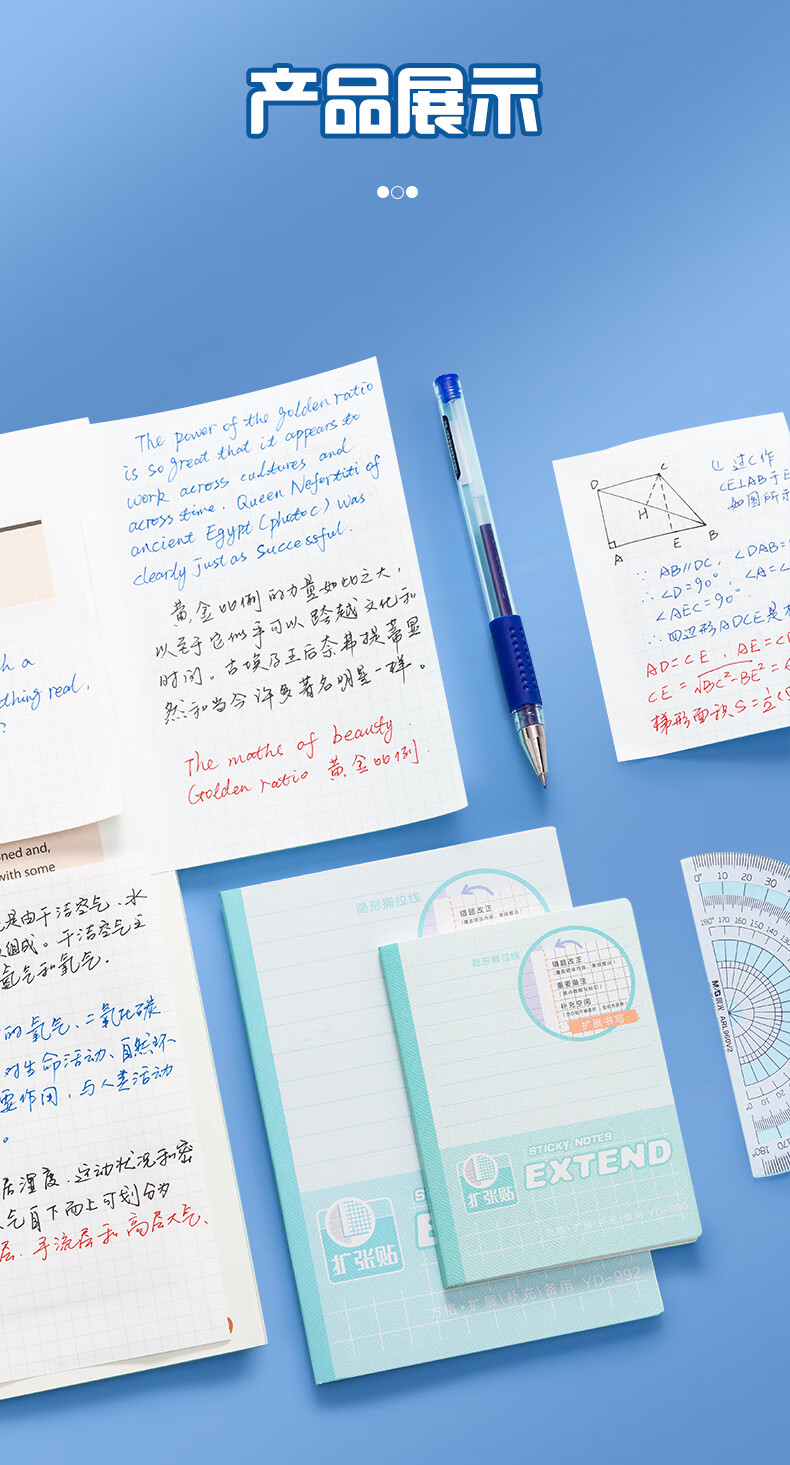 产品展示
The power of the golden ratio
is so great that it appears to
work across cultures and
across time. Queen Nefertiti of
ancient Egypt (photo c) was
clearly just as successful.
黄金比例的力量如此之大，
以至于它似乎可以跨越文化和
时间。古埃及王后奈弗提蒂显
然和当今许多著名明星一样。
The maths of beauty.
Golden ratio 黄金比例.
h a
thing real,
?
ned and,
with some
是由干洁空气、水
组成。干洁空气主
氩气和氧气.
的氧气、二氧化碳
对生命活动、自然环
要作用，与人类活动
。
居温度、运动状况和密
气自下而上可划分为
层、平流层和高层大气、
D
C
H
A
E
B
① 过C作
CE⊥AB于E
如图所示
∵ AB//DC, ∠DAB=9
∴ ∠D=90°, ∠A=∠
∠AEC=90°
∴ 四边形ADCE是
AD=CE, AE=CD
CE=√BC²-BE²=
梯形面积S=½(
隐形撕拉线
错题改正
扩张贴
方格·扩展\补充\备用 YD-992
隐形撕拉线
错题改正
(覆盖错误内容，重做整洁)
重要备注
补充空间
扩展书写
STICKY NOTES
EXTEND
扩张贴
0° 10 20 30
180° 170 160 150 140
M&G晨光 ARL960V2
0° 10 20
180° 170